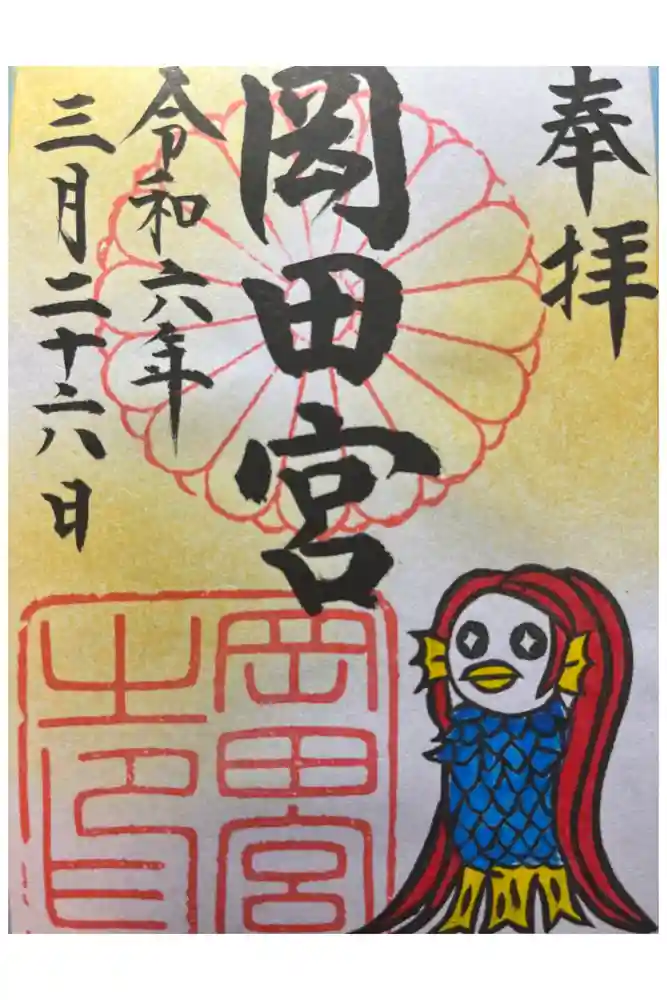 奉拝
岡田宮
令和六年
三月二十六日
岡田宮
之印